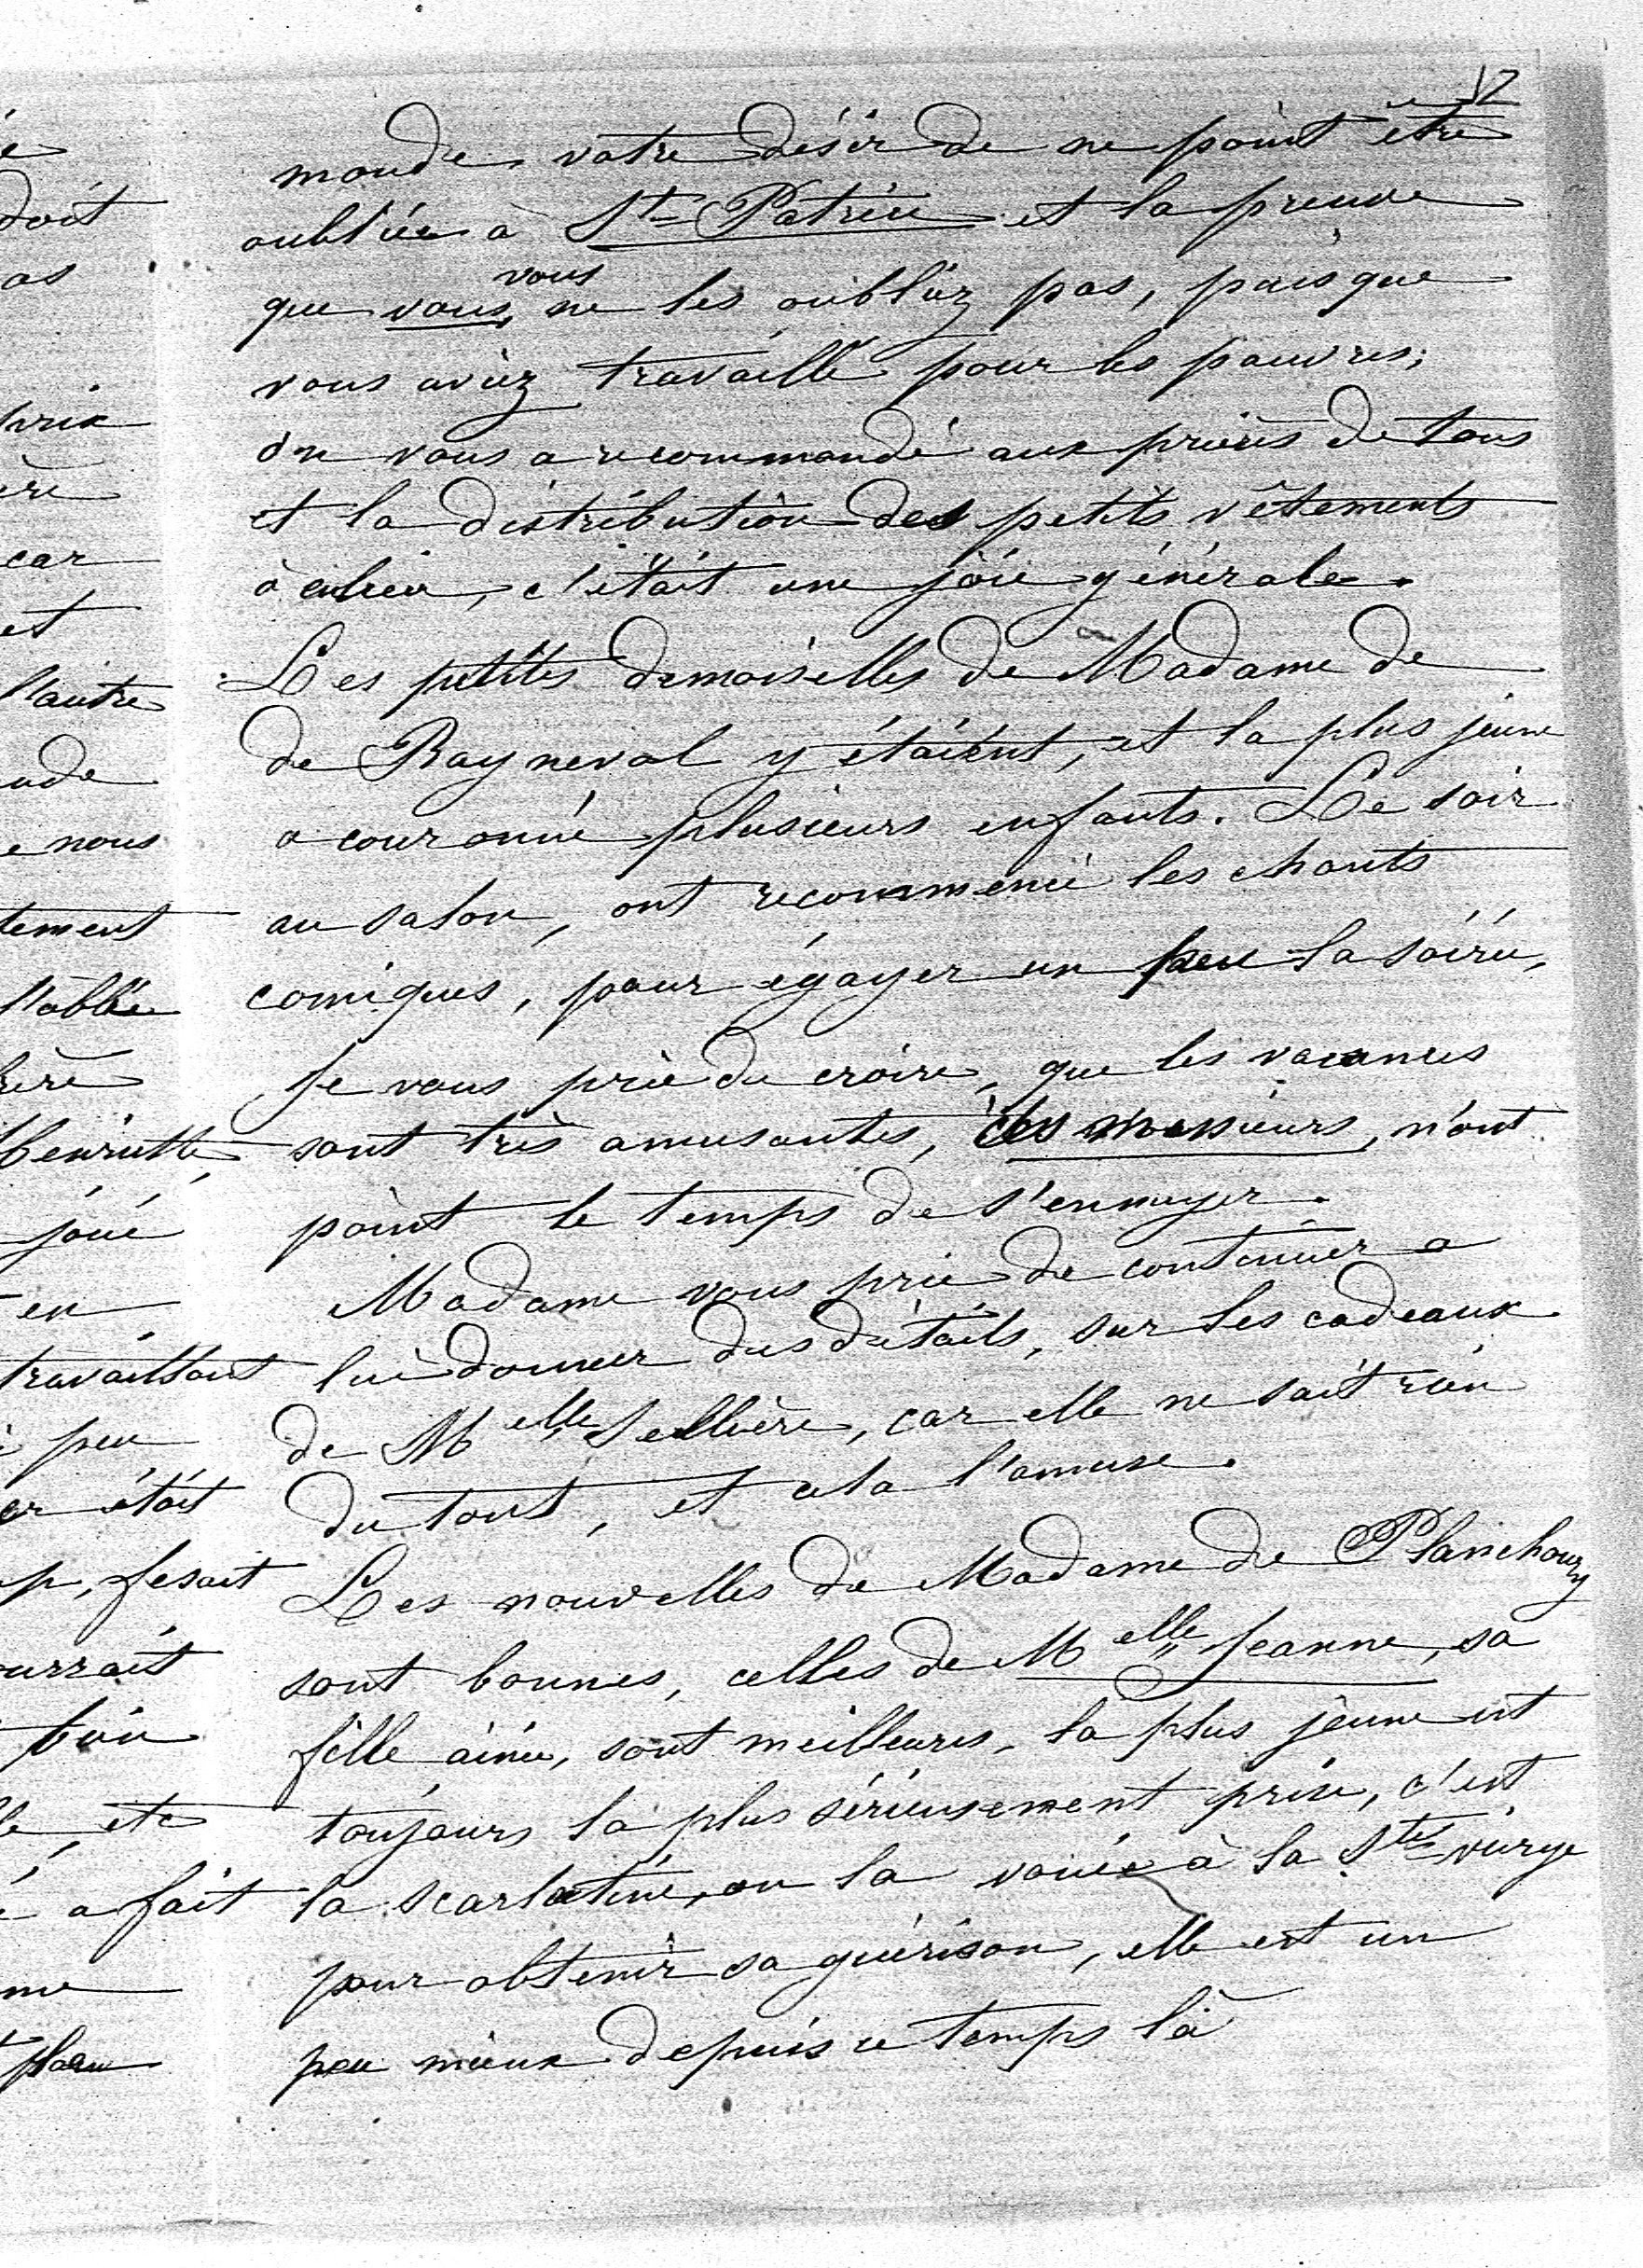 12
monde, votre désir de ne point être
oubliée à St-Patrice et la preuve
vous
que vous, ne les oubliez pas, puisque
vous aviez travaillé pour les pauvres;
on vous a recommandé aux prières de tous
et la distribution des petits vêtements
à eu lieu, c'était une joie générale.
Les petites demoiselles de Madame de
de Rayneval y étaient, et la plus jeune
a couronné plusieurs enfants. Le soir
au salon, ont recommencé les chants
comiques, pour égayer un peu la soirée,
Je vous prie de croire, que les vacances
sont très amusantes, ces messieurs, n'ont
point le temps de s'ennuyer.
Madame vous prie de continuer a
lui donner des détails, sur les cadeaux
de Melle Sellière, car elle ne sait rien
du tout, et cela l'amuse.
Les nouvelles de Madame de Planchoury
sont bonnes, celles de Melle Jeanne, sa
fille ainée, sont meilleures, la plus jeune est
toujours la plus sérieusement prise, c'est
la scarlatine, on la vouée à la Ste vierge
pour obtenir sa guérison, elle est un
peu mieux depuis ce temps là
doit
as
prix
car
et
l'autre
e nous
tement
l'abbé
joué
en
travaillant
peu
était
fesait
bien
etc
a fait